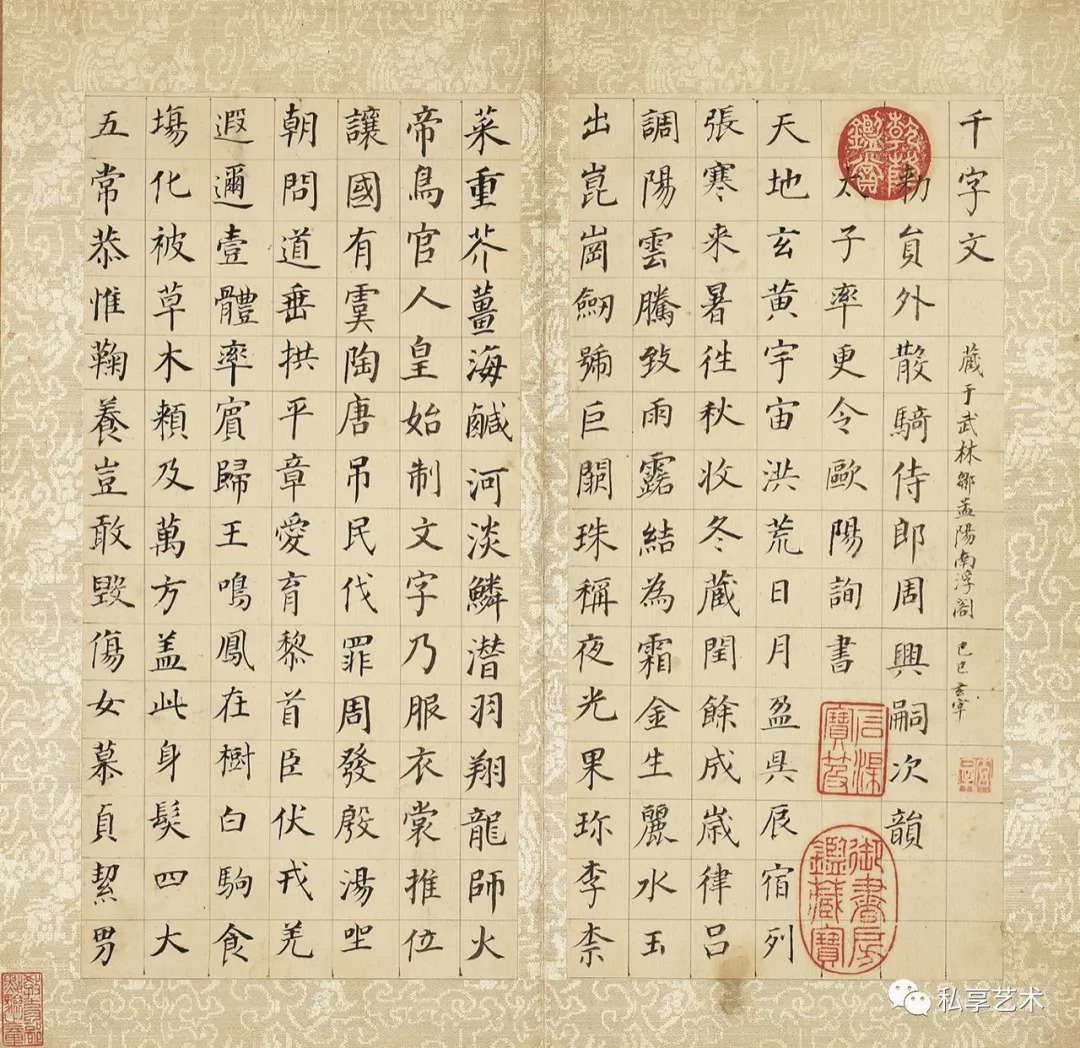 千字文
藏于武林鄒孟陽南浮閣 己巳玄宰
勅員外散騎侍郎周興嗣次韻
太子率更令歐陽詢書
天地玄黃宇宙洪荒日月盈昃辰宿列
張寒来暑往秋收冬藏閏餘成歲律呂
調陽雲騰致雨露結為霜金生麗水玉
出崑崗劒號巨闕珠稱夜光果珍李柰
菜重芥薑海鹹河淡鱗潛羽翔龍師火
帝鳥官人皇始制文字乃服衣裳推位
讓國有虞陶唐吊民伐罪周發殷湯坐
朝問道垂拱平章愛育黎首臣伏戎羌
遐邇壹體率賓歸王鳴鳳在樹白駒食
場化被草木賴及萬方盖此身髮四大
五常恭惟鞠養豈敢毀傷女慕貞絜男
乾隆鑑賞
石渠寶笈
御書房鑑藏寶
教育部點驗之章
私享艺术